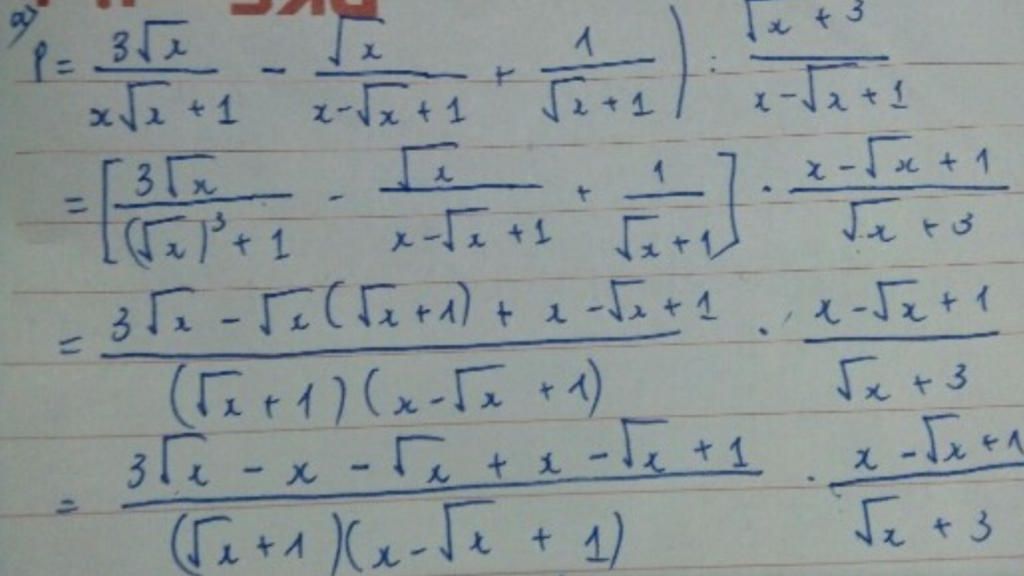 a)
P = 3√x / (x√x + 1) - √x / (x - √x + 1) + 1 / (√x + 1) ) : (√x + 3) / (x - √x + 1)
= [ 3√x / ((√x)³ + 1) - √x / (x - √x + 1) + 1 / (√x + 1) ] · (x - √x + 1) / (√x + 3)
= (3√x - √x(√x + 1) + x - √x + 1) / ((√x + 1)(x - √x + 1)) · (x - √x + 1) / (√x + 3)
= (3√x - x - √x + x - √x + 1) / ((√x + 1)(x - √x + 1)) · (x - √x + 1) / (√x + 3)